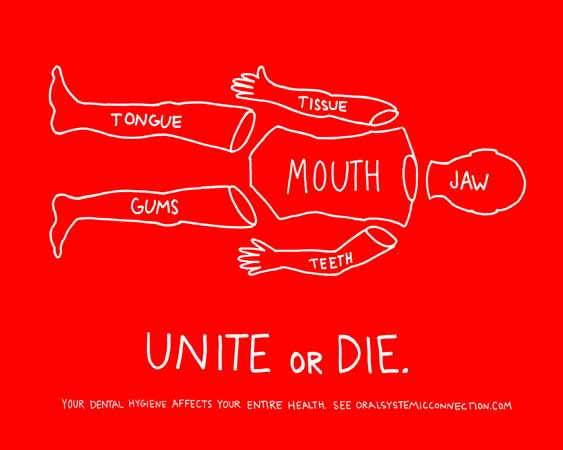 TISSUE
TONGUE
MOUTH
JAW
GUMS
TEETH
UNITE OR DIE.
YOUR DENTAL HYGIENE AFFECTS YOUR ENTIRE HEALTH. SEE ORALSYSTEMICCONNECTION.COM